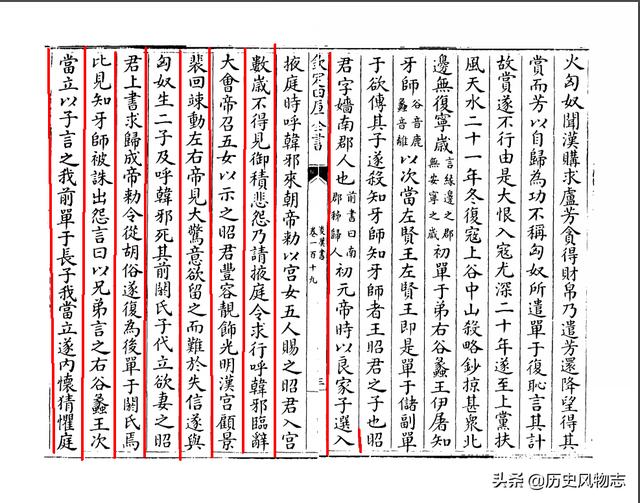 火匈奴聞漢購求盧芳貪得財帛乃遣芳還降望得其
賞而芳以自歸為功不稱匈奴所遣單于復恥言其計
故賞遂不行由是大恨入寇尤深二十年遂至上黨扶
風天水二十一年冬復寇上谷中山殺略鈔掠甚衆北
邊無復寧歲言緣邊之郡無安寧之歲初單于弟右谷蠡王伊屠知
牙師谷音鹿蠡音離以次當左賢王左賢王即是單于儲副單
于欲傳其子遂殺知牙師知牙師者王昭君之子也昭
君字嬙南郡人也前書曰南郡秭歸人初元帝時以良家子選入
欽定四庫全書
後漢書
卷一百十九
三
掖庭時呼韓邪來朝帝勅以宮女五人賜之昭君入宮
數歲不得見御積悲怨乃請掖庭令求行呼韓邪臨辭
大會帝召五女以示之昭君豐容靚飾光明漢宮顧景
裴回竦動左右帝見大驚意欲留之而難於失信遂與
匈奴生二子及呼韓邪死其前閼氏子代立欲妻之昭
君上書求歸成帝勅令從胡俗遂復為後單于閼氏焉
比見知牙師被誅出怨言曰以兄弟言之右谷蠡王次
當立以子言之我前單于長子我當立遂内懷猜懼庭
头条 @历史风物志